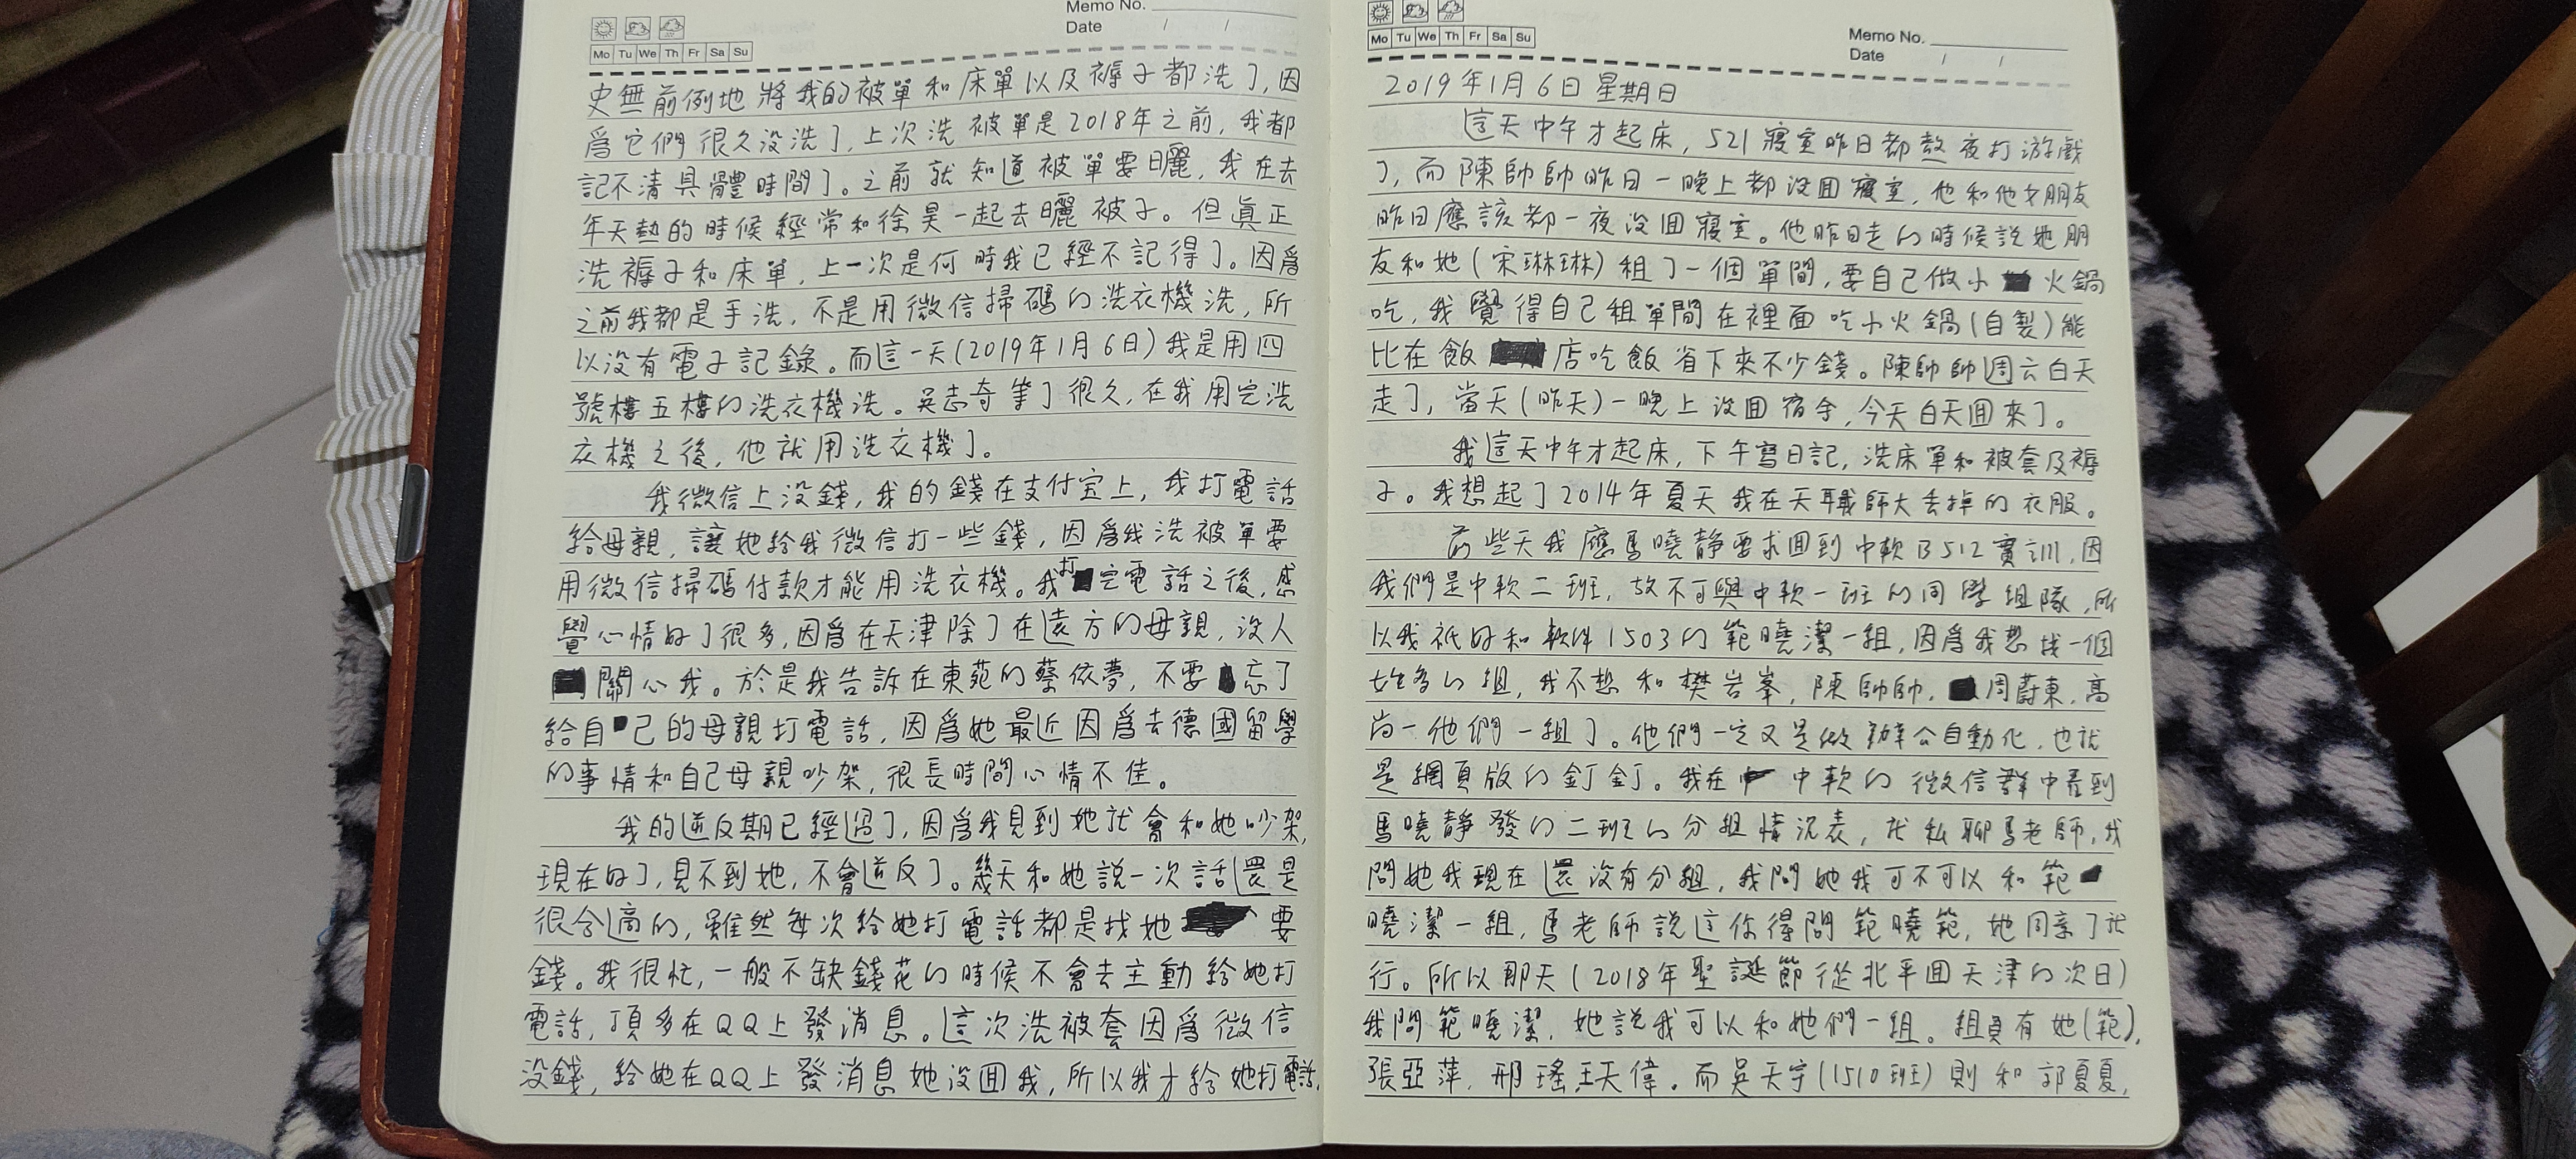 Memo No.
Date / /
Mo Tu We Th Fr Sa Su
史無前例地將我的被單和床單以及褥子都洗了,因
爲它們很久没洗了,上次洗被單是2018年之前,我都
記不清具體時間了。之前就知道被單要曬,我在去
年天熱的時候經常和徐昊一起去曬被子。但眞正
洗褥子和床單,上一次是何時我已經不記得了。因爲
之前我都是手洗,不是用微信掃碼的洗衣機洗,所
以没有電子記錄。而這一天(2019年1月6日)我是用四
號樓五樓的洗衣機洗。吳志奇等了很久,在我用完洗
衣機之後,他就用洗衣機了。
我微信上没錢,我的錢在支付宝上,我打電話
給母親,讓她給我微信打一些錢,因爲我洗被單要
用微信掃碼付款才能用洗衣機。我打完電話之後,感
覺心情好了很多,因爲在天津除了在遠方的母親,没人
關心我。於是我告訴在東苑的蔡依夢,不要忘了
給自己的母親打電話,因爲她最近因爲去德國留學
的事情和自己母親吵架,很長時間心情不佳。
我的逆反期已經過了,因爲我見到她就會和她吵架,
現在好了,見不到她,不會逆反了。幾天和她説一次話還是
很合適的,雖然每次給她打電話都是找她要
錢。我很忙,一般不缺錢花的時候不會去主動給她打
電話,頂多在QQ上發消息。這次洗被套因爲微信
没錢,給她在QQ上發消息她没囬我,所以我才給她打電話.
Mo Tu We Th Fr Sa Su
Memo No.
Date / /
2019年1月6日星期日
這天中午才起床,521寢室昨日都熬夜打游戲
了,而陳帥帥昨日一晚上都没囬寢室,他和他女朋友
昨日應該都一夜没囬寢室。他昨日走的時候説她朋
友和她(宋琳琳)租了一個單間,要自己做小火鍋
吃,我覺得自己租單間在裡面吃小火鍋(自製)能
比在飯店吃飯省下來不少錢。陳帥帥周六白天
走了,當天(昨天)一晚上没囬宿舍,今天白天囬來了。
我這天中午才起床,下午寫日記,洗床單和被套及褥
子。我想起了2014年夏天我在天職師大丢掉的衣服。
前些天我應馬曉靜要求囬到中軟B512實訓,因
我們是中軟二班,故不可與中軟一班的同學組隊,所
以我祇好和軟件1503的範曉潔一組,因爲我想找一個
女生多的組,我不想和樊岩峯,陳帥帥,周蔚東,高
尚一他們一組了。他們一定又是做辦公自動化,也就
是網頁版的釘釘。我在中軟的微信群中看到
馬曉靜發的二班的分組情況表,就私聊馬老師,我
問她我現在還没有分組,我問她我可不可以和範
曉潔一組,馬老師説這你得問範曉範,她同意了就
行。所以那天(2018年聖誕節從北平囬天津的次日)
我問範曉潔,她説我可以和她們一組。組員有她(範),
張亞萍,邢瑤,王天偉。而吳天宇(1510班)則和郭夏夏,